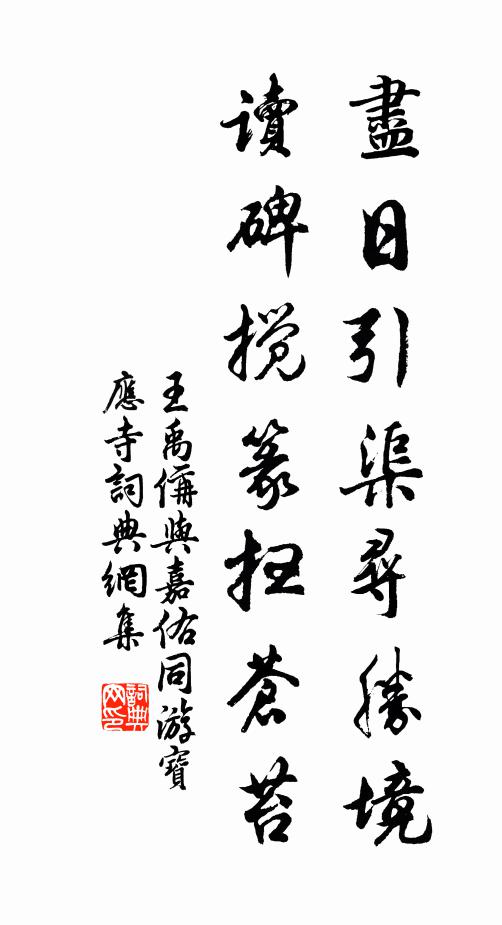 盡日引渠尋勝境
讀碑攬篆掃蒼苔
王禹偁與嘉佑同游寶
應寺詞典網集
詞典网印